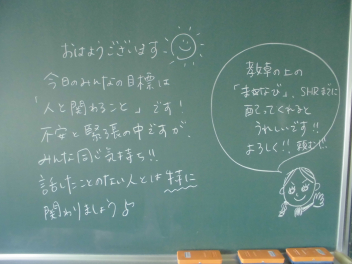 おはようございます
今日のみんなの目標は
「人と関わること」です!
不安と緊張の中ですが、
みんな同じ気持ち!!
話したことのない人とは特に
関わりましょう♪
教卓の上の
「まなび」、SHRまでに
配ってくれると
うれしいです!!
よろしく!!